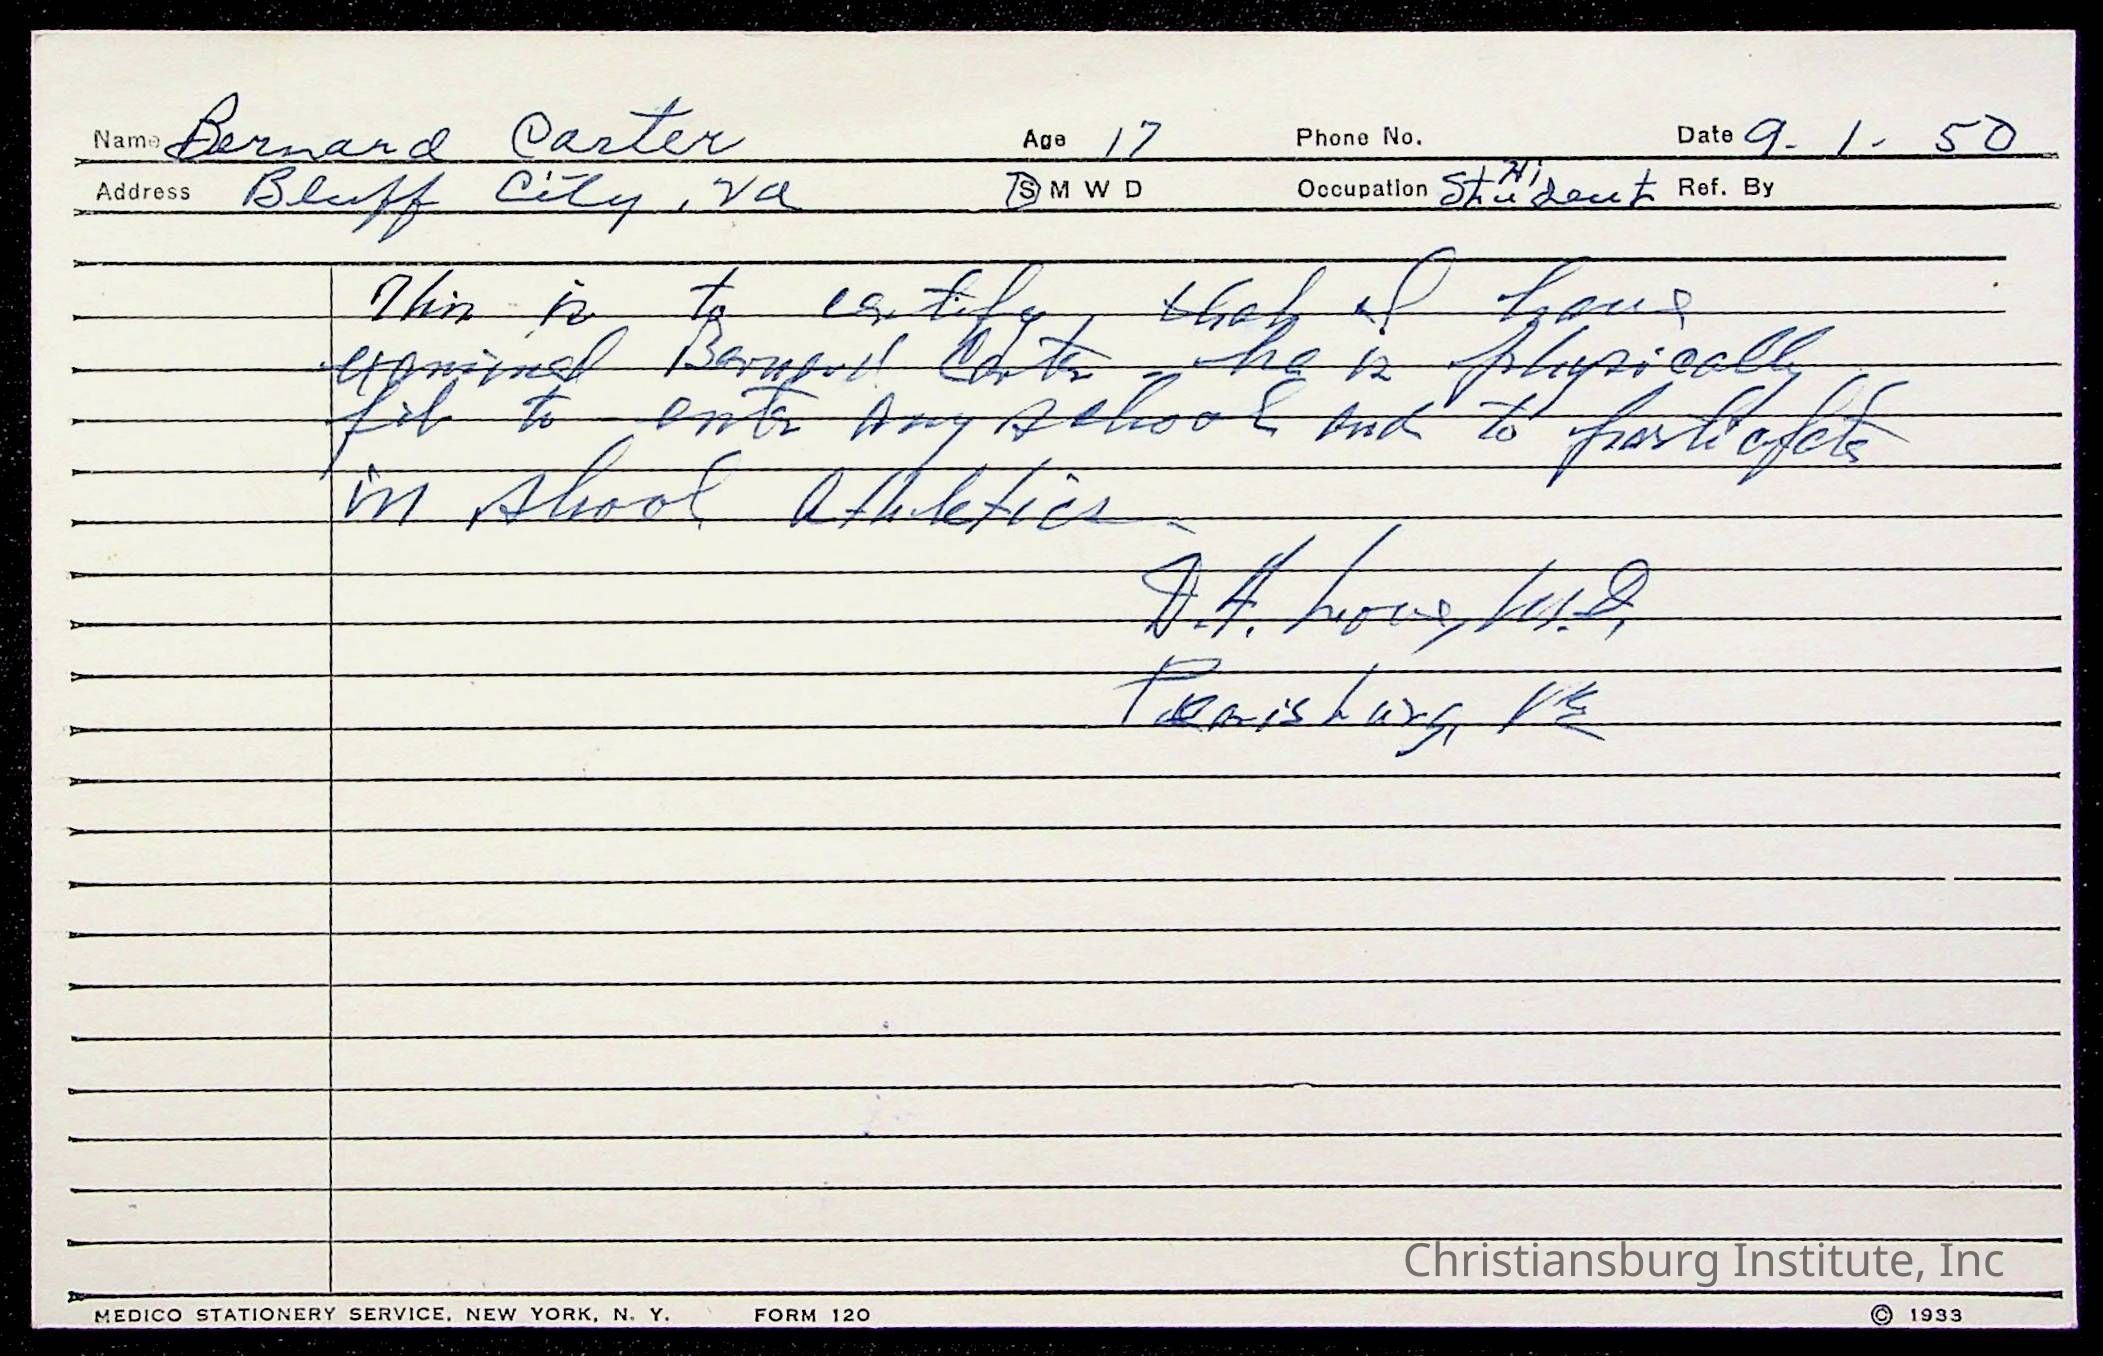 Name Bernard Carter Age 17 Phone No. Date 9-1-50
Address Bluff City, Va S M W D Occupation Hi Student Ref. By
This is to certify that I have
examined Bernard Carter - he is physically
fit to enter any school and to participate
in shool athletics -
M.D.
Pearisburg, Va
Christiansburg Institute, Inc
MEDICO STATIONERY SERVICE, NEW YORK, N. Y. FORM 120 © 1933